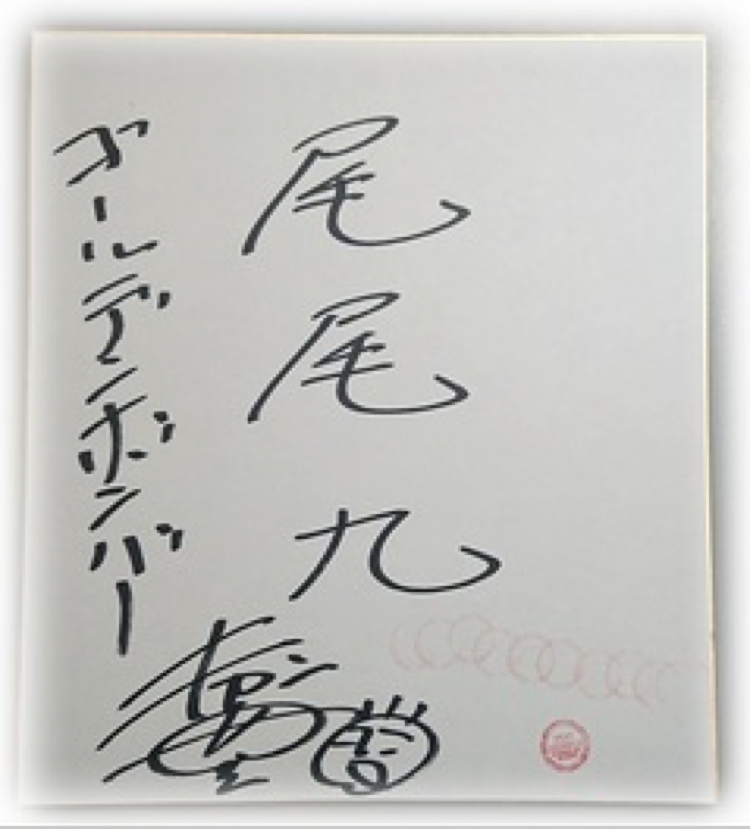 尾尾九
ゴールデンボンバー